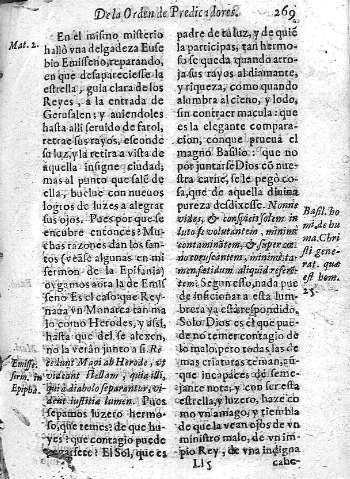 De la Orden de Predicadores.
269
Mat. 2.
En el mismo misterio
hallò vna delgadeza Euse
bio Emisseno, reparando,
en que desapareciesse la
estrella, guia clara de los
Reyes, a la entrada de
Gerusalen; y auiendoles
hasta alli seruido de farol,
retrae sus rayos, esconde
su luz, y la retira a vista de
aquella insigne ciudad;
mas al punto que salẽ de
ella, buelue con nueuos
logros de luzes a alegrar
sus ojos. Pues por que se
encubre entonces? Mu
chas razones dan los san
tos (vease algunas en mi
sermon de la Epifania)
oygamos aora la de Emis
seno Es el caso: que Rey-
naua vn Monarca tan ma
lo como Herodes, y assi,
hasta que del se alexen,
no la verán junto a si. Re
cedunt Magi ab Herode, vt
videant stellam, quia illi,
qui à diabolo separantur, vi
dent iustitiæ lumen. Pues
sepamos luzero hermo-
so, que temes? de que hu-
yes? que contagio puede
El Sol, que es
Emiss.
serm. in
Epipha.
padre de tu luz, y de quiẽ
la participas, tan hermo-
so se queda quando arro-
ja sus rayos al diamante,
y riqueza, como quando
alumbra al cieno, y lodo,
sin contraer macula: que
es la elegante compara-
cion, conque prueua el
magno Basilio: que no
por juntarse Dios cõ nues
tra carne, se le pegó co-
sa, que de aquella diuina
pureza desdixesse. Nonne
vides, & conspicis solem in
luto se volutantem, minime
contaminatem, &
minime ta-
men sordium aliquid referẽ
tem? Segun esso, nada pue
de inficionar a esta lum-
brera ya està respondido.
Solo Dios es el que pue-
de no temer contagio de
lo malo, pero todas las de
mas criaturas teman, aũ-
que incapaces de seme-
jante nota; y con ser esta
estrella, y luzero, haze co
mo vn amago, y tiembla
de que la vean ojos de vn
ministro malo, de vn im
pio Rey, de vna indigna
Basil. ho
mi. de hu
ma. Chri
sti gene-
rat. que
est hom.
25.
Ll 5
cabe-